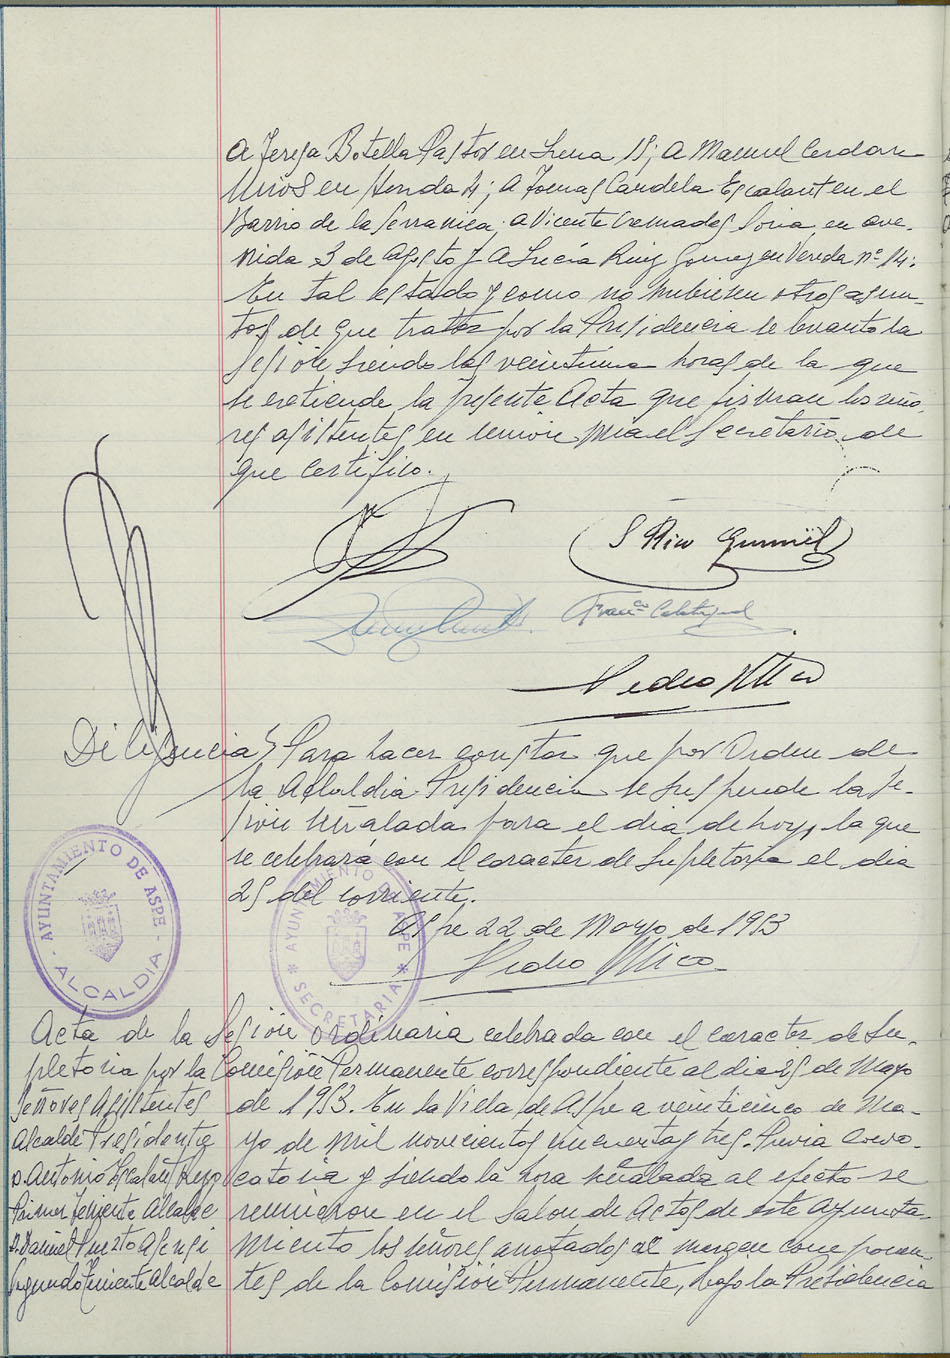 A Teresa Botella Pastor en Luna 15; A Manuel Cerdan
Mirós en Honda 4; A Tomas Candela Escalante en el
Barrio de la Serranica, a Vicente Cremades Soria, en ave-
nida 3 de Agosto y A Lucía Ruiz Gomez en Vereda nº 14:
En tal estado y como no hubiesen otros asun-
tos de que tratar por la Presidencia se levanto la
sesión siendo las veintiuna horas de la que
se extiende la presente Acta que firman los seño-
res asistentes, en union mia el Secretario, de
que certifico.
S Rico
Franco Calatayud
Pedro Mico
Diligencia Para hacer constar que por Orden de
la Alcaldia Presidencia se suspende la se-
sión señalada para el dia de hoy, la que
se celebrará con el caracter de supletoria el dia
25 del corriente.
Aspe 22 de Mayo de 1953
Pedro Mico
AYUNTAMIENTO DE ASPE
- ALCALDIA -
AYUNTAMIENTO DE ASPE
* SECRETARIA *
Acta de la Sesión ordinaria celebrada con el caracter de Su-
pletoria por la Comisión Permanente correspondiente al dia 25 de Mayo
de 1953. En la Villa de Aspe a veinticinco de Ma-
yo de mil novecientos cincuenta y tres. Previa convo-
catoria y siendo la hora señalada al efecto se
reunieron en el Salon de Actos de este Ayunta-
miento los señores anotados al margen componen-
tes de la Comisión Permanente, bajo la Presidencia
Señores Asistentes
Alcalde Presidente
D. Antonio Escalante
Primer Teniente Alcalde
D. Daniel Puerto Asensi
Segundo Teniente Alcalde